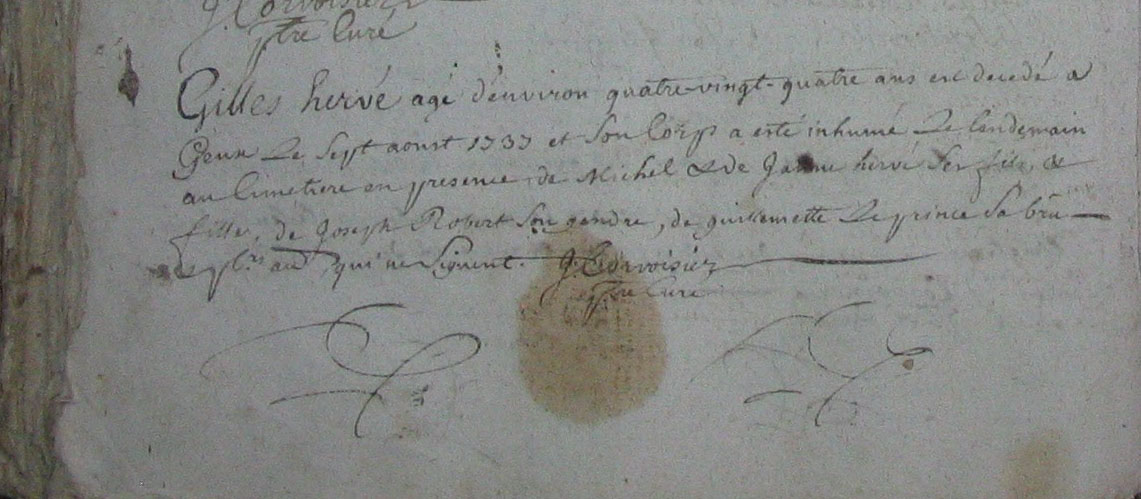 J. Corvoisier
ptre Curé
Gilles hervé agé d'environ quatre-vingt-quatre ans est decedé a
Le sept aoust 1737 et son Corps a esté inhumé Le Lendemain
au Cimetiere en presence, de Michel & de Janne hervé ses fils, &
fille, de Joseph Robert son gendre, de guillemette Le prince sa brû
& plrs autr qui ne signent. J. Corvoisier
ptre Curé